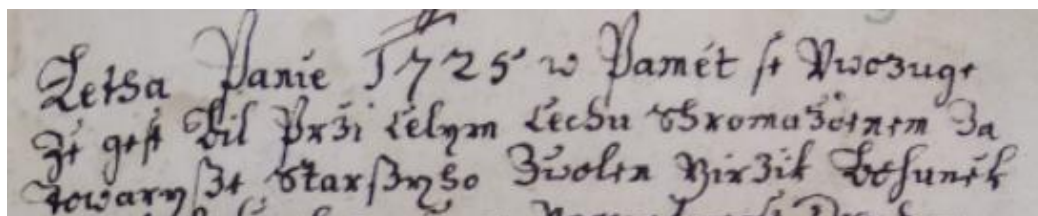 Letha Panie 1725 w Pamět se Uwozuge
Že gest Bil Przi Celym Cechu Shromaždenem Za
Towarysße Starsßyho Zwolen Girzik Bohunek